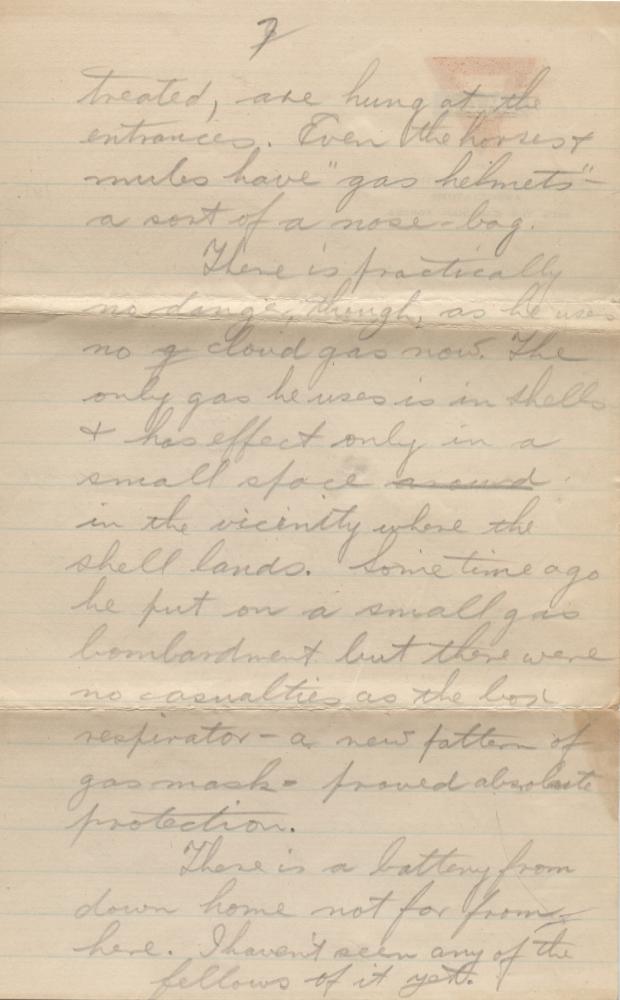 7
treated, are hung at the
entrances. Even the horses &
mules have "gas helmets" -
a sort of a nose-bag.
There is practically
no danger, though, as he uses
no g cloud gas now. The
only gas he uses is in shells
& has effect only in a
small space around
in the vicinity where the
shell lands. Some time ago
he put on a small gas
bombardment but there were
no casualties as the box
respirator - a new pattern of
gas mask - proved absolute
protection.
There is a battery from
down home not far from
here. I haven't seen any of the
fellows of it yet.